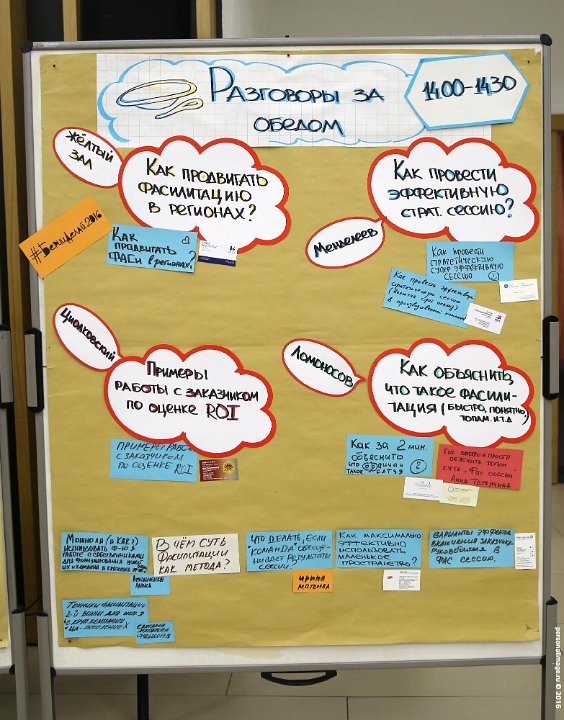 Разговоры за
обедом
14:00-14:30
Жёлтый
зал
Как продвигать
фасилитацию
в регионах?
Как провести
эффективную
страт. сессию?
Менделеев
Как
продвигать
ФАСи в регионах?
Как провести
стратегическую
супер эффективную
сессию
Как провести эффективную
стратегическую сессию
Циолковский
Примеры
работы с заказчиком
по оценке ROI
Ломоносов
Как объяснить,
что такое фасили-
тация (быстро, понятно,
топам и т.д
Примеры работ
с заказчиком
по оценке ROI
Как за 2 мин.
объяснить
что
такое
Как быстро и просто
объяснить топам
суть фас. сессии
Анна
Можно ли (и как?)
использовать Ф-ю в
В чём суть
фасилитации
как метода?
Что делать, если
команда обесце-
нивает результаты
сессии?
Ирина
Матвеева
Как максимально
эффективно
использовать
маленькое
пространство?
Варианты эффектив.
включения заказчика
руководителя в
фас сессию.
Техники фасилитации
personalimage.ru © 2016